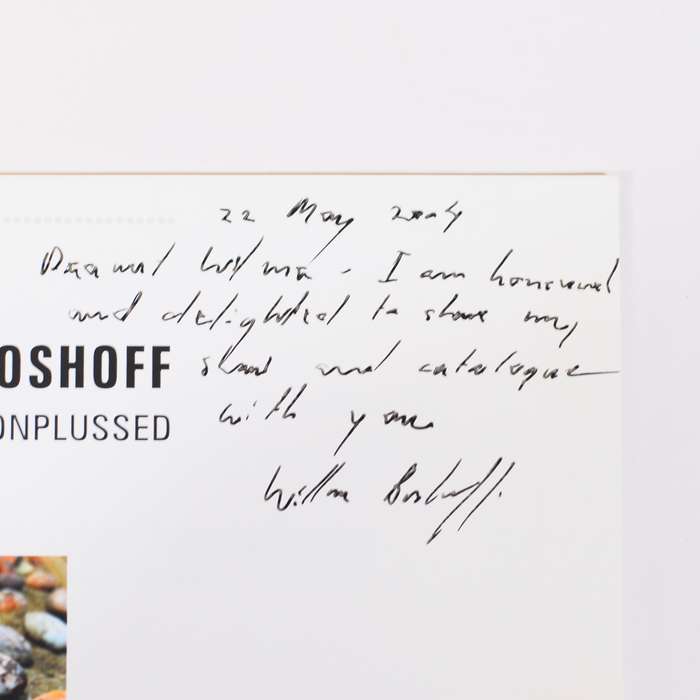 22 May 2004
Wilma - I am honoured
and delighted to share my
OSHOFF show and catalogue
with you
ONPLUSSED
Willem Boshoff.